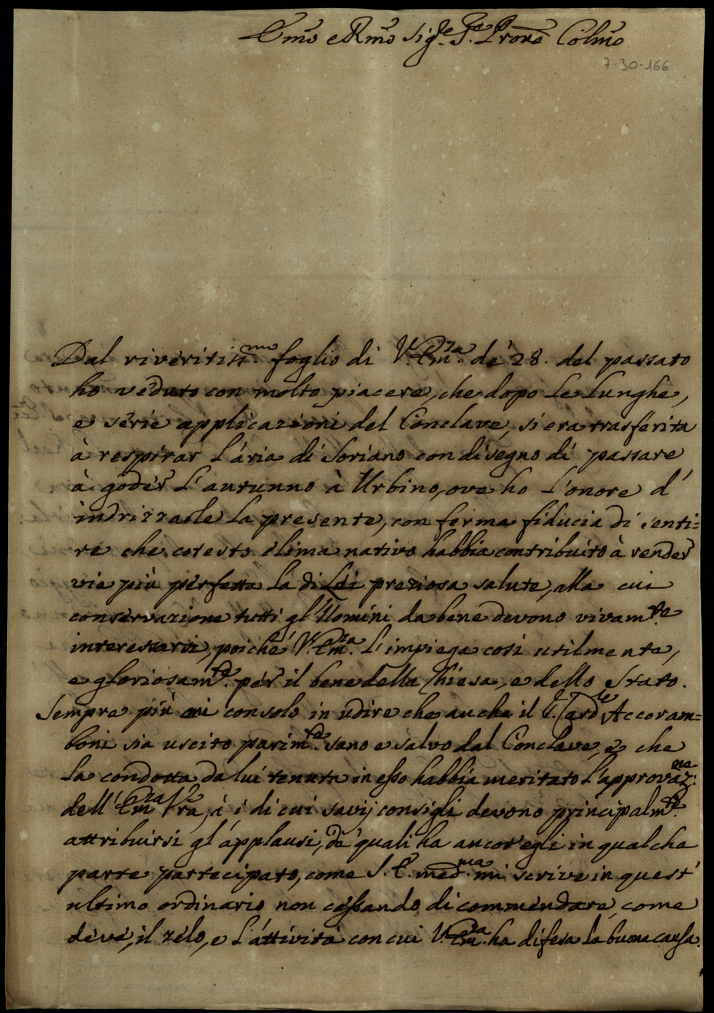 Emõ e Rmõ Sig.re P.re Prone Colmõ
7-30-166
Dal riveritiss.mo foglio di V. Em.za de' 28. del passato
ho veduto con molto piacere, che dopo le lunghe,
e serie applicazioni del Conclave, si era trasferita
à respirar l'aria di Soriano con disegno di passare
à goder l'autunno à Urbino, ove ho l'onore d'
indrizzarle la presente, con ferma fiducia di senti=
re che cotesto clima nativo habbia contribuito à render
vie più perfetta la di Lei preziosa salute, alla cui
conservazione tutti gl'Uomini da bene devono vivam.te
interessarsi, poiche V. Em.za l'impiega così utilmente,
e gloriosam.te per il bene della Chiesa, e dello Stato.
Sempre più mi consolo in udire che anche il S. Card.le Accoram=
boni sia uscito parim.te sano e salvo dal Conclave, e che
la condotta da lui tenuta in esso habbia meritato l'approvaz.ne
dell' Em.za V.ra, à i di cui savij consigli devono principalm.te
attribuirsi gl'applausi, de' quali ha ancor'egli in qualche
parte partecipato, come S. E. med.ma mi scrive in quest'
ultimo ordinario non cessando di commendare, come
deve, il zelo, e l'attività con cui V. Em.za ha difesa la buona causa.